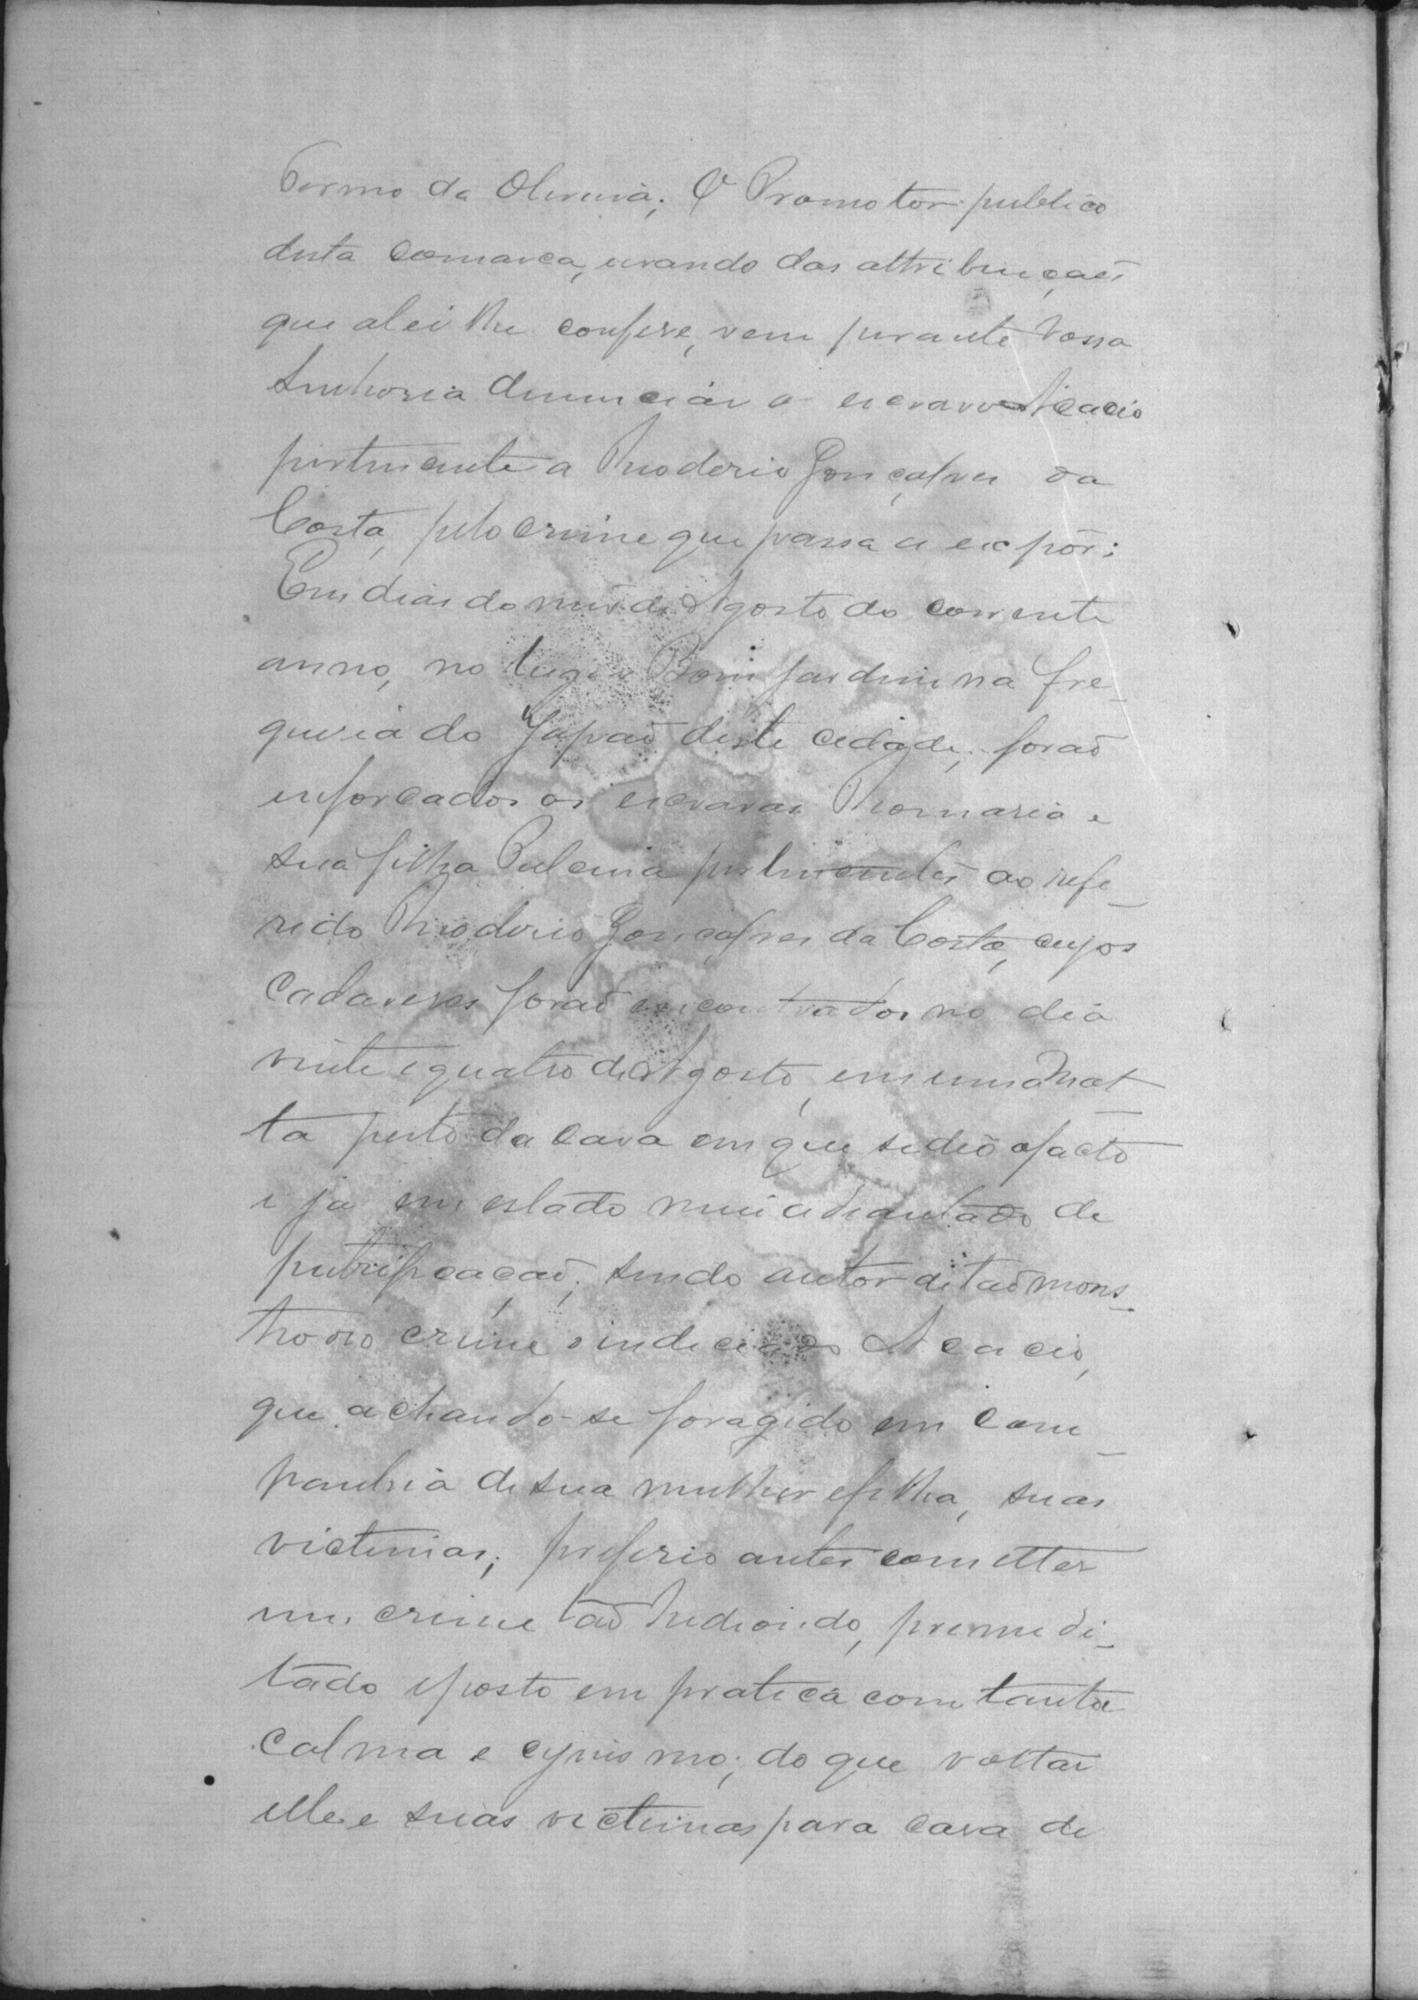 Termo da Oliveira; O Promotor publico
desta comarca, usando das attribuições
que a lei lhe confere, vem perante Vossa
Senhoria denunciar o escravo Acacio
pertencente a Theoderio Gonçalves da
Costa, pelo crime que passa a expôr:
Em dias do mês de Agosto do corrente
anno, no lugar Bom Jardim na fre_
guesia do Japão deste cidade, forão
enforcados os escravas Romaria e
sua filha pertencentes ao refe_
rido Theoderio Gonçalves da Costa, cujos
cadaveres forão encontrados no dia
vinte e quatro de Agosto, em uma Mat_
ta perto da casa em que se deo o facto
e ja em estado mui adiantado de
putrificação; sendo autor de tão mons_
troso crime o indiciado Acacio,
que achando-se foragido em com_
panhia de sua mulher e filha, suas
victimas; preferio antes cometter
um crime tão hediondo, premedi_
tado e posto em pratica com tanta
calma e cynismo; do que voltar
elle e suas victimas para casa de